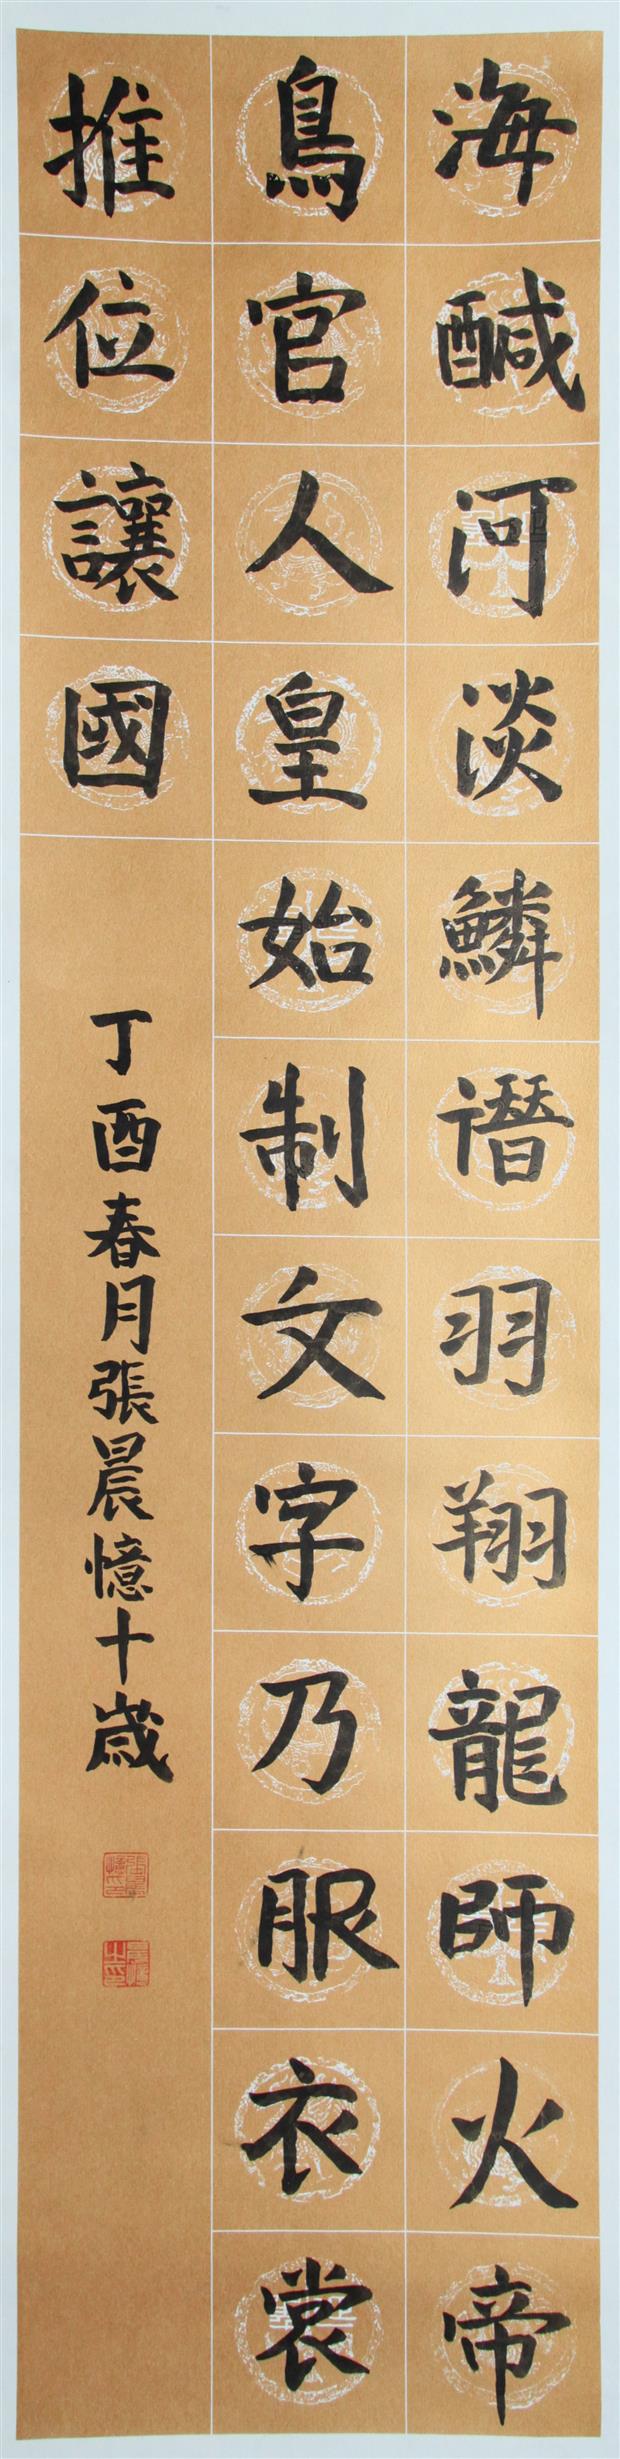 海醎河淡鱗潜羽翔龍師火帝
鳥官人皇始制文字乃服衣裳
推位讓國
丁酉春月張晨憶十歲